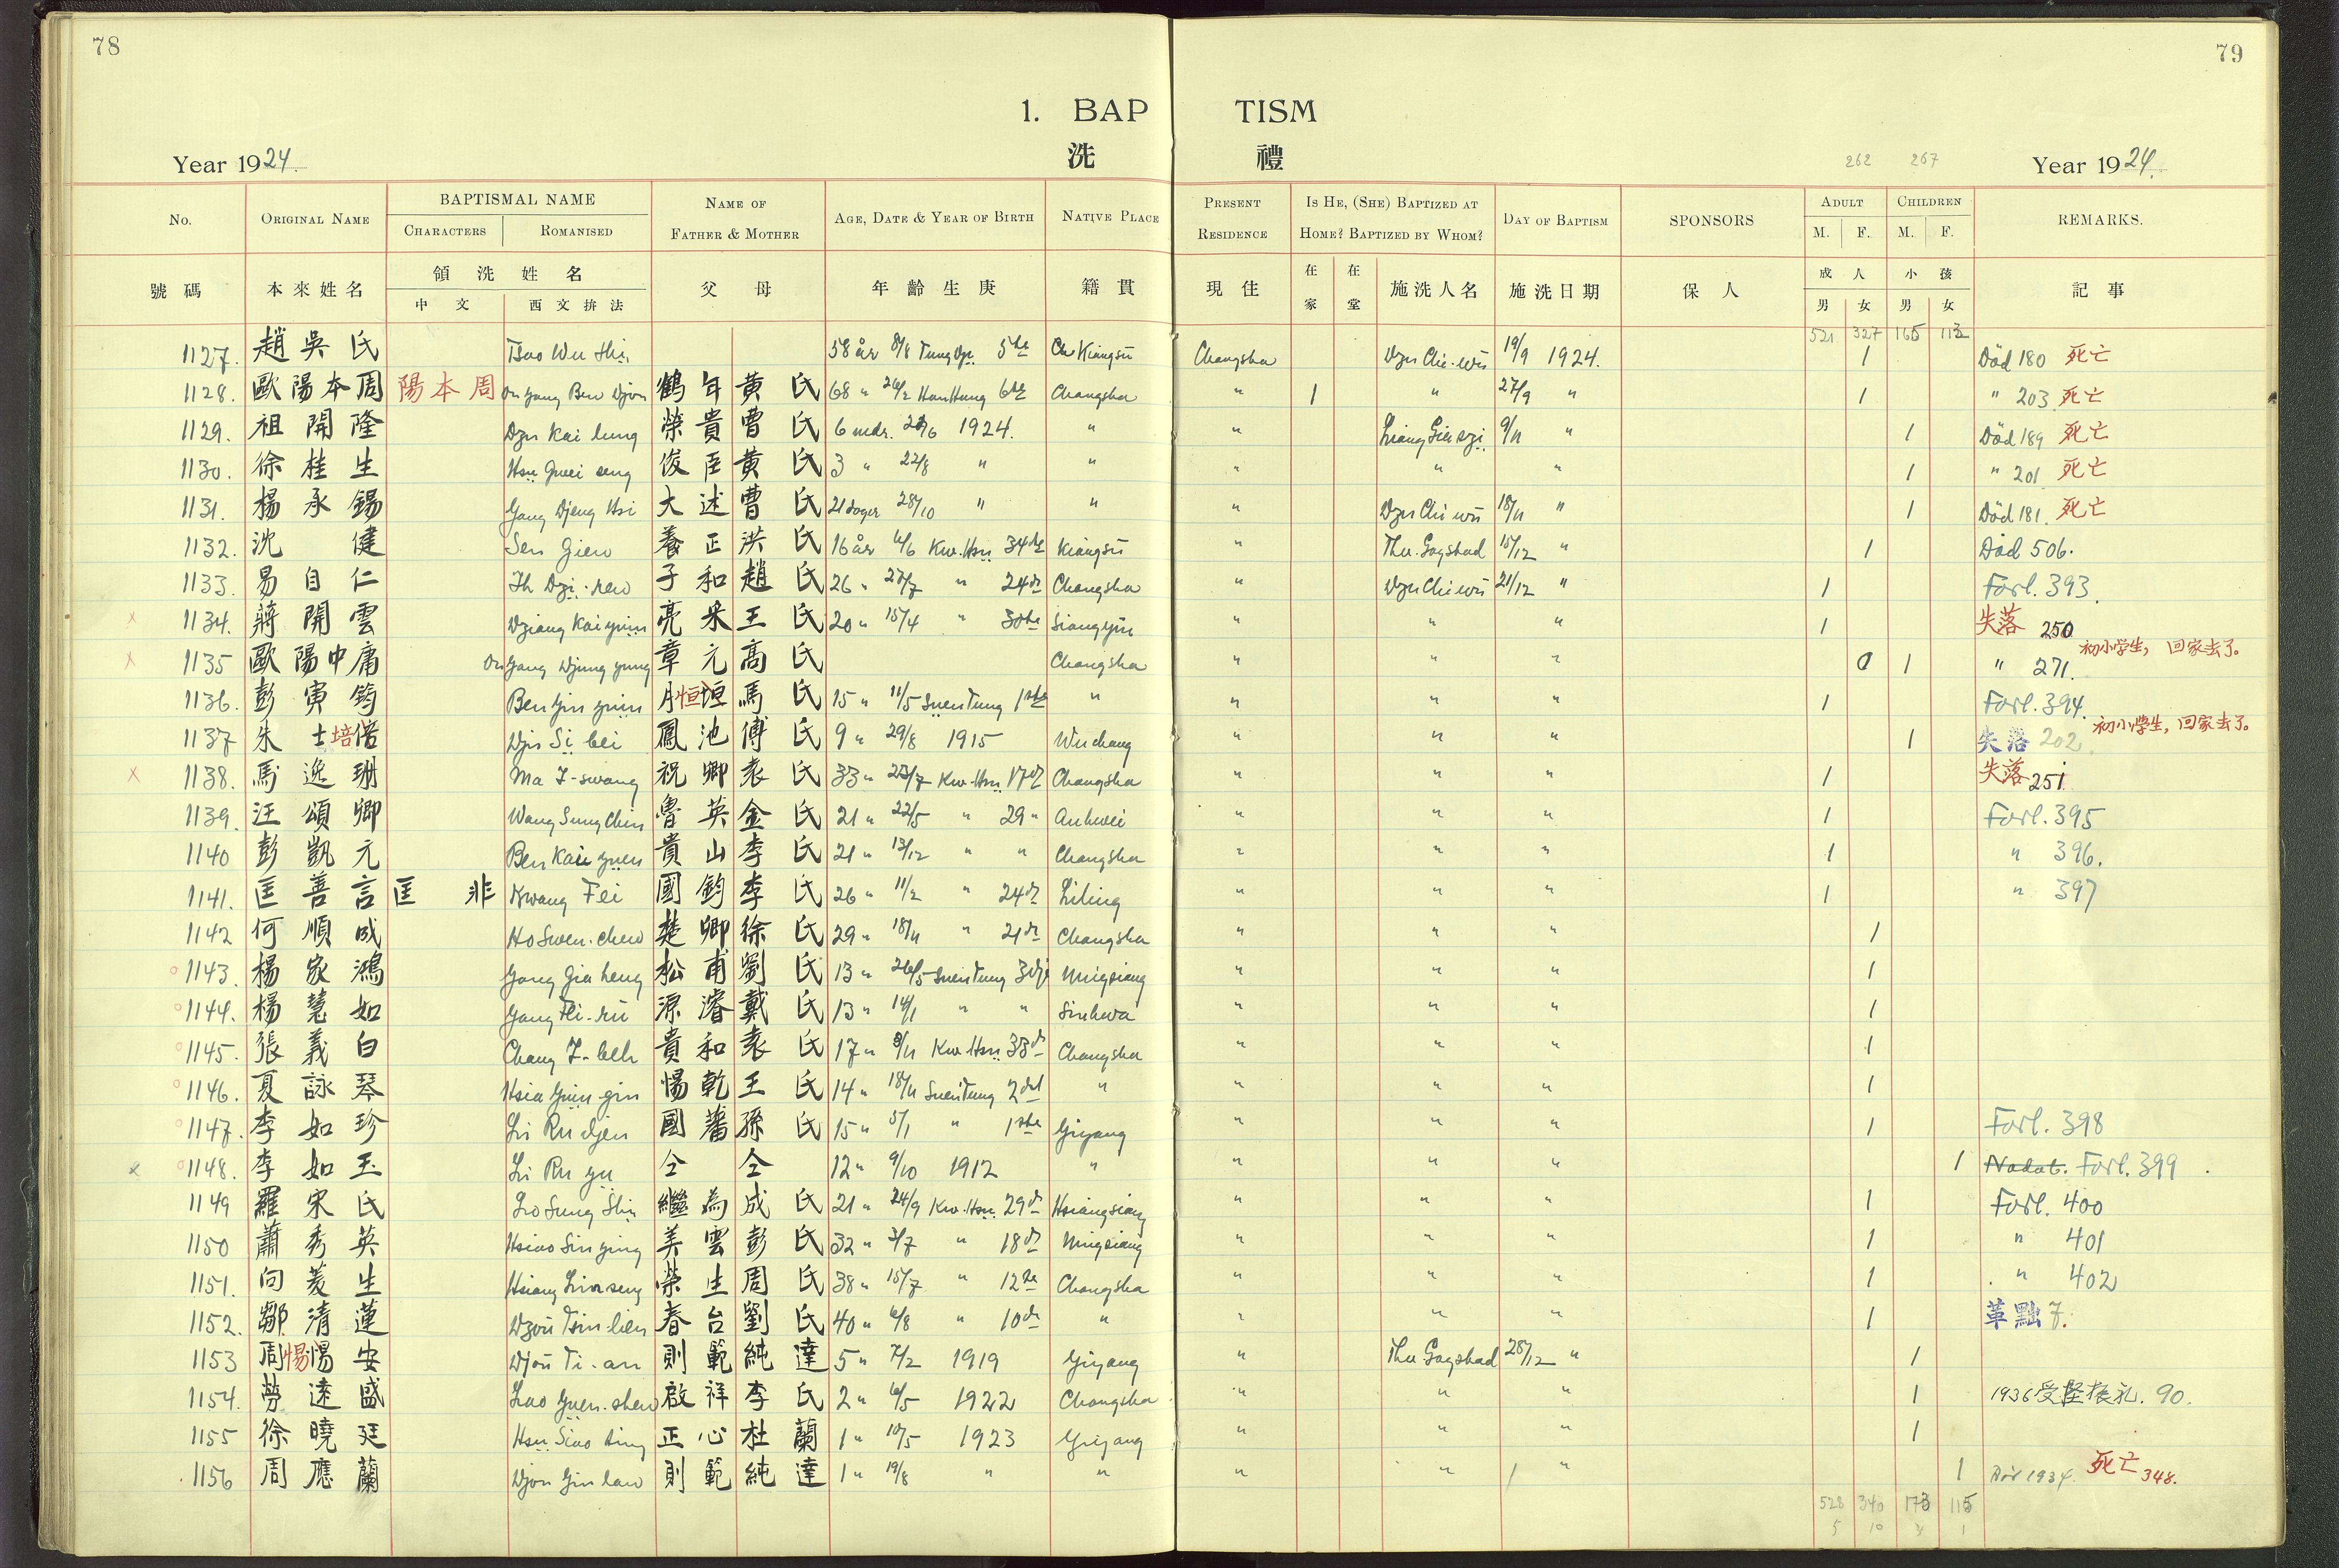 78
79
1. BAP TISM
洗 禮
Year 1924. 262 267 Year 1924.
No. ORIGINAL NAME BAPTISMAL NAME CHARACTERS ROMANISED NAME OF FATHER & MOTHER AGE, DATE & YEAR OF BIRTH NATIVE PLACE PRESENT RESIDENCE IS HE, (SHE) BAPTIZED AT HOME? BAPTIZED BY WHOM? DAY OF BAPTISM SPONSORS ADULT M. F. CHILDREN M. F. REMARKS.
號碼 本來姓名 領洗姓名 中文 西文拚法 父母 年齡生庚 籍貫 現住 在家 在堂 施洗人名 施洗日期 保人 成人 男 女 小孩 男 女 記事
521 327 165 113
1127. 趙吳氏 Tsao Wu Shi 58 år 8/8 5te Kiangsü Changsha Dzu Chi-wü 19/9 1924. 1 Död 180 死亡
1128. 歐陽本周 陽本周 鶴年 黃氏 68 " 26/2 6te Changsha " 1 " 27/9 " 1 " 203 死亡
1129. 祖開隆 Dzu Kai lung 榮貴 曹氏 6 mdr. 1924. " " 9/11 " 1 Död 189 死亡
1130. 徐桂生 Hsu Gwei seng 俊臣 黃氏 3 " 22/8 " " " " " 1 " 201 死亡
1131. 楊承錫 Yang Djeng Hsi 大述 曹氏 21 dager 28/10 " " " Dzu Chi wü 18/11 " 1 Död 181. 死亡
1132. 沈健 Sen Gien 養正 洪氏 16 år 6/6 Kw. Hsu 34de Kiangsü " Thu. Gogstad 15/12 " 1 Död 506.
1133. 易自仁 Ih Dzi-ren 子和 趙氏 26 " 27/7 " 24de Changsha " Dzu Chi wü 21/12 " 1 Forl. 393.
1134. 蔣開雲 Dziang Kai yuin 亮采 王氏 20 " 15/4 " 30te Siangyin " " " 1 失落 250
1135 歐陽中庸 Ou Yang Djung yung 章元 高氏 Changsha " " " 0 1 " 271. 初小学生, 回家去了。
1136. 彭寅鈞 Ben Yin yuin 月恒垣 馬氏 15 " 11/5 Suen Tung 1ste " " " " 1 Forl. 394.
1137 朱士培偣 Djü Si bei 鳳池 傅氏 9 " 29/8 1915 Wuchang " " " 1 失落 202. 初小学生, 回家去了。
1138. 馬逸珊 Ma I-swang 祝卿 袁氏 33 " 23/7 Kw. Hsu. 17de Changsha " " " 1 失落 251.
1139. 汪頌卿 Wang Sung Chin 魯英 金氏 21 " 22/5 " 29 " Anhwei " " " 1 Forl. 395
1140 彭凱元 Ben Kai yuen 貴山 李氏 21 " 13/12 " " Changsha " " " 1 " 396.
1141. 匡善言 匡非 Kwang Fei 國鈞 李氏 26 " 11/2 " 24de Liling " " " 1 " 397
1142 何順成 Ho Swen-chen 楚卿 徐氏 29 " 18/11 " 21de Changsha " " " 1
1143. 楊家鴻 Yang Gia heng 松甫 劉氏 13 " 26/5 Suen Tung 3dje " " " 1
1144. 楊慧如 Yang Fei-rü 源濬 戴氏 13 " 14/1 " " Sinhwa " " " 1
1145. 張義白 Chang I-beh 貴和 袁氏 17 " 8/11 Kw. Hsu 33de Changsha " " " 1
1146. 夏詠琴 Hsia Yuin-gin 惕乾 王氏 14 " 18/11 Suen Tung 2det " " " " 1
1147. 李如珍 Li Ru djen 國藩 孫氏 15 " 5/1 " 1ste Yiyang " " " 1 Forl. 398
1148. 李如玉 Li Ru yu 仝 仝 12 " 9/10 1912 " " " " 1 Nadat. Forl. 399
1149 羅宋氏 Lo Sung Shi 繼為 成氏 21 " 24/9 Kw. Hsu. 29de Hsiangsiang " " " 1 Forl. 400
1150 蕭秀英 Hsiao Siu ying 美雲 彭氏 32 " 3/7 " 18de " " " 1 " 401
1151. 向菱生 榮生 周氏 38 " 15/7 " 12te Changsha " " " 1 " 402
1152. 鄒清蓮 Dzou Tsin-lien 春台 劉氏 40 " 6/8 " 10de " " " " 1 革黜 7.
1153 周惕惕安 Djou Ti-an 則範 純達 5 " 7/2 1919 Yiyang " Thu. Gogstad 28/12 " 1
1154. 勞遠盛 Lao Yuen-shen 啟祥 李氏 2 " 6/5 1922 Changsha " " " 1 1936 受堅振礼. 90.
1155 徐曉廷 Hsu Siao ting 正心 杜蘭 1 " 10/5 1923 Yiyang " " " 1
1156 周應蘭 Djou Yin lan 則範 純達 1 " 19/8 " " " " " 1 Död 1934. 死亡 348.
528 340 173 115
5 10 1